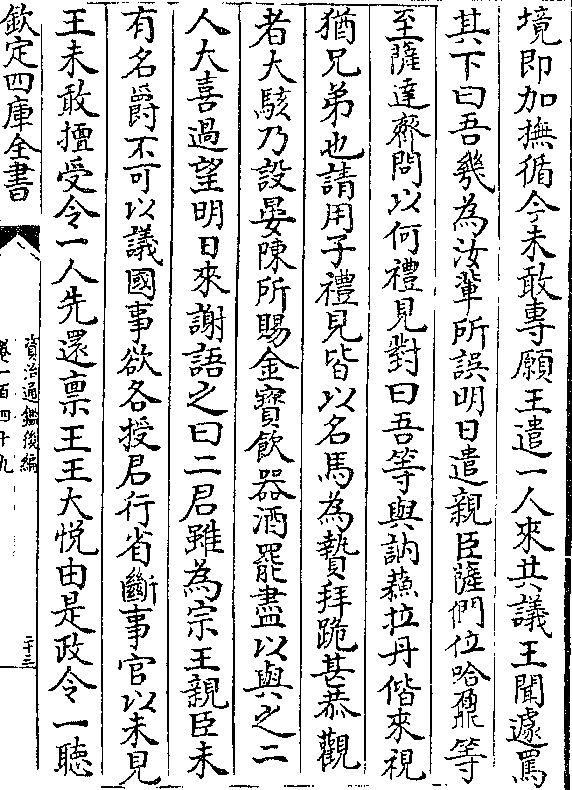 境即加撫循今未敢專願王遣一人來共議王聞遽罵
其下曰吾幾為汝輩所誤明日遣親臣薩們位哈鼐等
至薩達齊問以何禮見對曰吾等與訥蘓拉丹偕來視
猶兄弟也請用子禮見皆以名馬為贄拜跪甚恭觀
者大駭乃設宴陳所賜金寶飲器酒罷盡以與之二
人大喜過望明日來謝語之曰二君雖為宗王親臣未
有名爵不可以議國事欲各授君行省斷事官以未見
王未敢擅受令一人先還禀王王大悦由是政令一聽
欽定四庫全書
資治通鑑後編
卷一百四十九
二十三